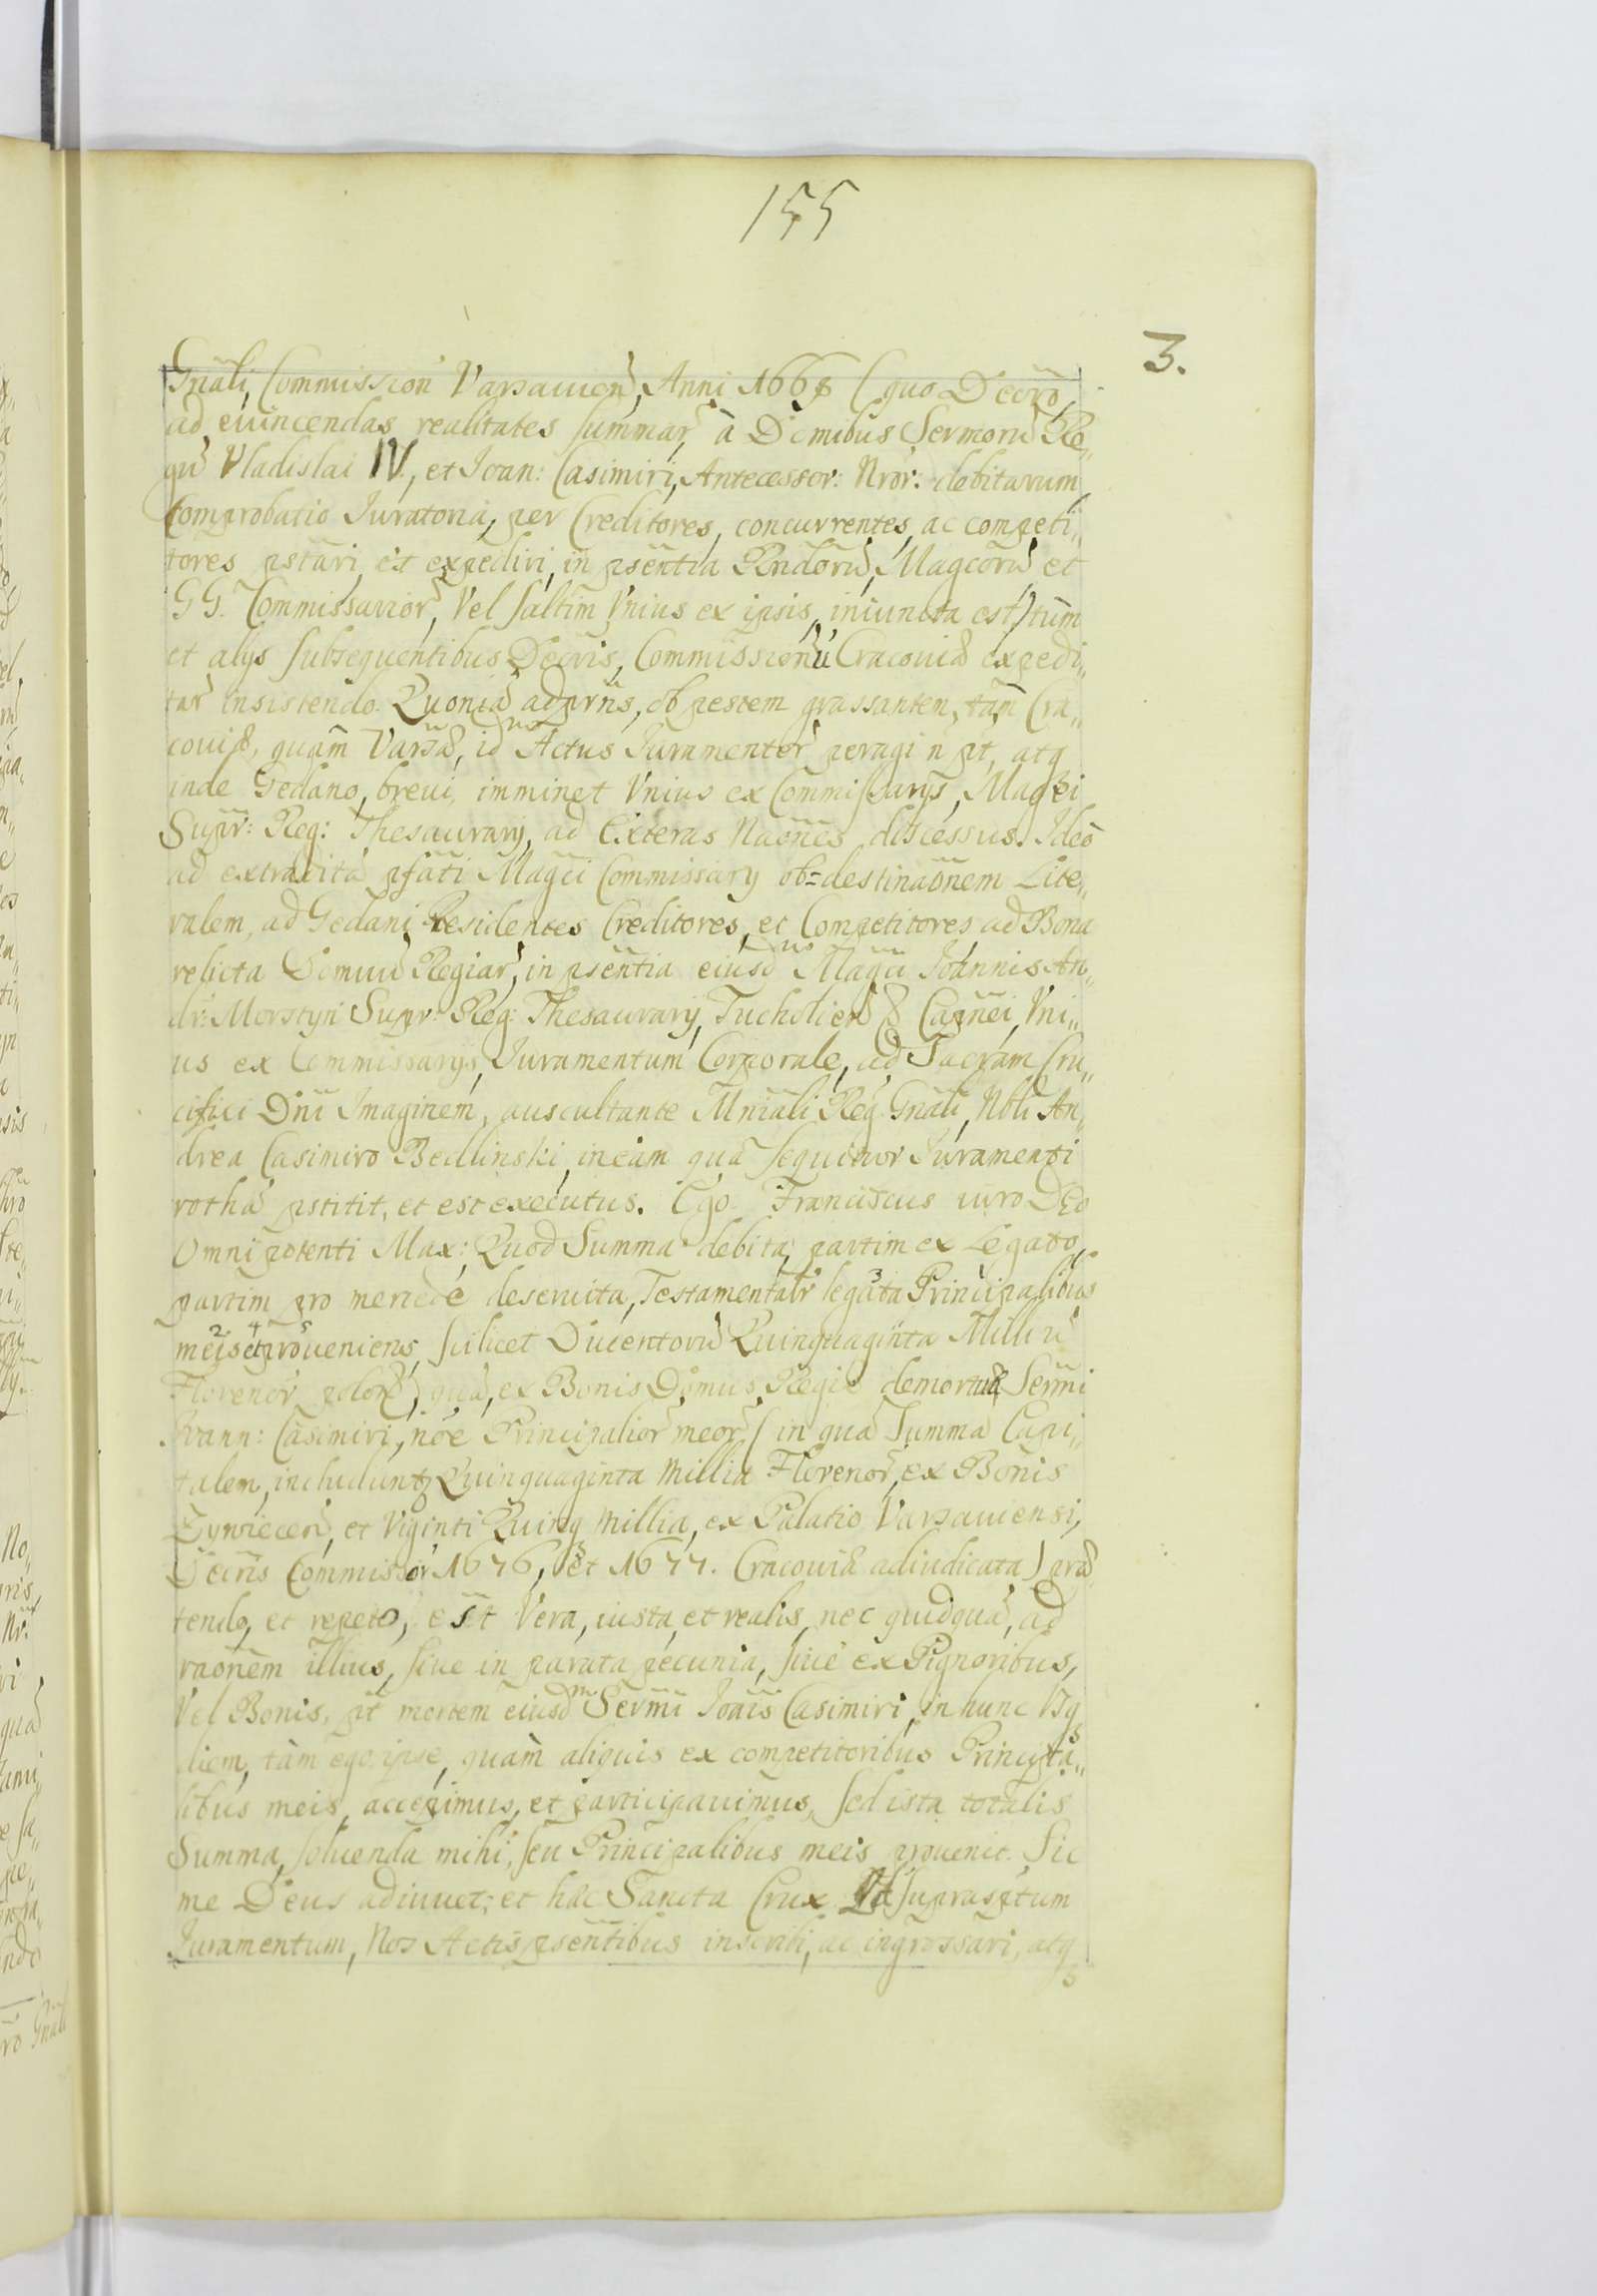 155
3.
Gnali, Commission Varsavien, Anni 1668 (quo Decro
ad euincendas realitates summar, à Dmibus Sermoru Re„
gu Vladislai IV, et Ioan: Casimiri, Antecessor: Nror: debitarum
Comprobatio Iuratoria, per Creditores, concurrentes, ac competi„
tores pstari, et expediri, in psentia Rndoru, Magcoru et
GG. Commissarior, Vel saltim Vnius ex ipsis, iniuncta est) tum
et alys subsequentibus Decris, Commissionu Cracouiæ expedi„
tar insistendo. Quonia adprns, ob pestem grassantem, tam Cra„
couiæ, quàm Varsæ, id Actus Iuramentor peragi n pt, atq
inde Gedano, breui, imminet Vnius ex Commissarys, Magci
Supr: Reg: Thesaurary, ad Exteras Naones discessus. Ideo
ad extradita pfati Magci Commissary ob=destinaonem Lite„
ralem, ad Gedani Residentes Creditores, et Competitores ad Bona
relicta Domuu Regiar, in psentia eiusd Magci Ioannis An„
dr: Morstyn Supr: Reg: Thesaurary, Tucholien & Capnei, Vni„
us ex Commissarys, Iuramentum Corporale, ad Sacram Cru„
cifixi Dni Imaginem, auscultante Mniali Reg. Gnali, Nbli An„
drea Casimiro Bedlinski, in eam qua sequitur Iuramenti
rotha pstitit, et est executus. Ego Franciscus iuro DEo
Omnipotenti Max: Quod Summa debita, partim ex Legato,
partim pro mercede deseruita, Testamentalr legata Principalibus
meis et proueniens, scilicet Ducentoru Quinquaginta Milliu
Florenor polon, qua, ex Bonis Domus Regiæ demortuæ Sermi
Ioann: Casimiri, noe Principalior meor (in qua Summa Capi„
talem, includunt Quinquaginta Millia Florenor, ex Bonis
Zywiecen, et Viginti Quinq Millia, ex Palatio Varsauiensi,
Decris Commissor 1676, et 1677. Cracouiæ adiudicata) præ
tendo, et repeto, est Vera, iusta, et realis, nec quidqua, ad
raonem illius, siue in parata pecunia, siue ex Pignoribus,
Vel Bonis, pt mortem eiusdm Sermi Ioais Casimiri, in hunc Vsq
diem, tàm ego ipse, quàm aliquis ex competitoribus Principa„
libus meis, accepimus, et participauimus, sed ista totalis
Summa, soluenda mihi, seu Principalibus meis prouenit. Sic
me Deus adiuuet, et hæc Sancta Crux. Qd suprasptum
Iuramentum, Nos Actis psentibus inscribi, ac ingrossari, atq